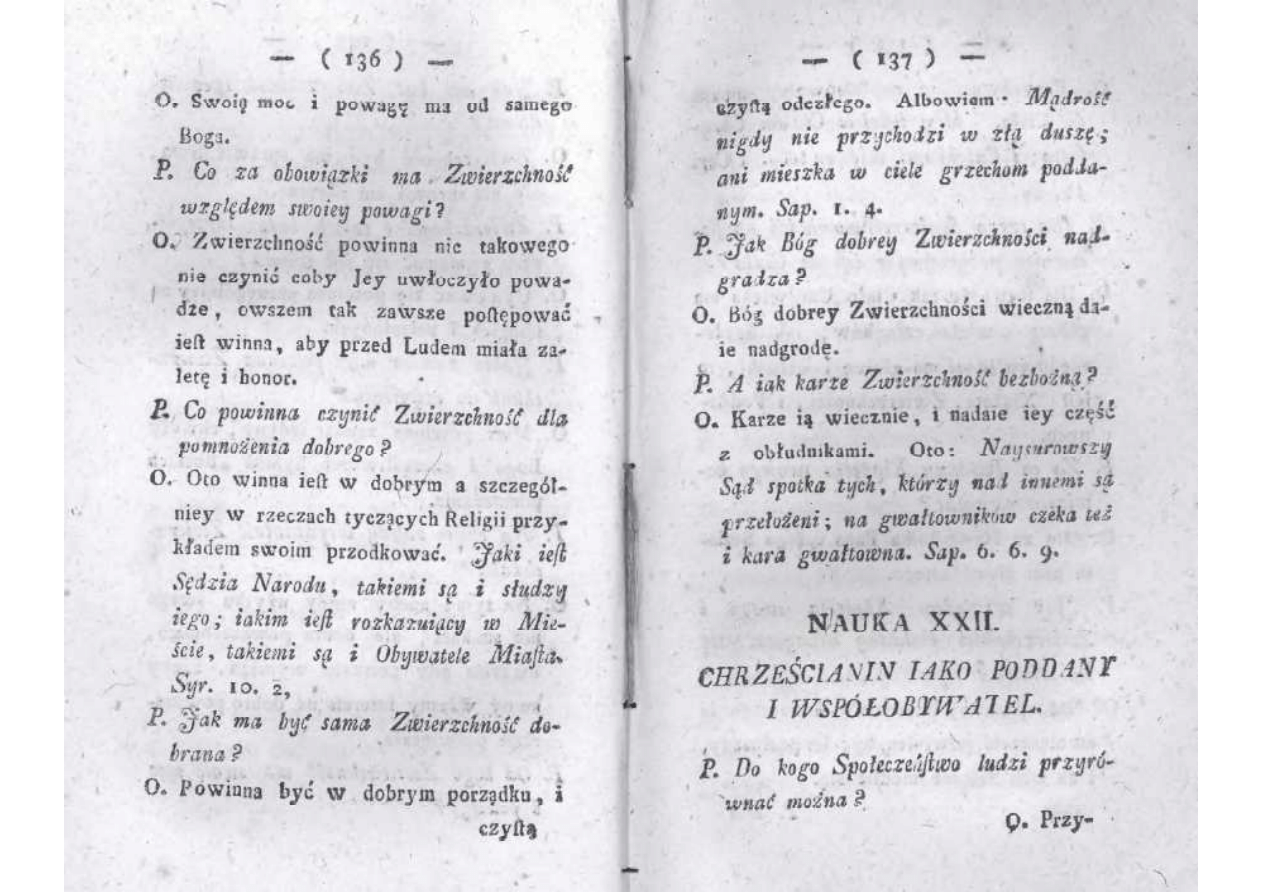 — ( 136 ) —
O. Swoię moc i powagę ma od samego
Boga.
P. Co za obowiązki ma Zwierzchność
względem swoiey powagi?
O. Zwierzchność powinna nic takowego
nie czynić coby Jey uwłoczyło powa-
dze, owszem tak zawsze poſtępować
ieſt winna, aby przed Ludem miała za-
letę i honor.
P. Co powinna czynić Zwierzchność dla
pomnożenia dobrego?
O. Oto winna ieſt w dobrym a szczegól-
niey w rzeczach tyczących Religii przy-
kładem swoim przodkować. Jaki ieſt
Sędzia Narodu, takiemi są i słudzy
iego; iakim ieſt rozkazuiący w Mie-
ście, takiemi są i Obywatele Miaſta.
Syr. 10. 2,
P. Jak ma być sama Zwierzchność do-
brana?
O. Powinna być w dobrym porządku, i
czyſtą
— ( 137 ) —
czyſtą odezłego. Albowiem Mądrość
nigdy nie przychodzi w złą duszę;
ani mieszka w ciele grzechom podda-
nym. Sap. 1. 4.
P. Jak Bóg dobrey Zwierzchności nad-
gradza?
O. Bóg dobrey Zwierzchności wieczną da-
ie nadgrodę.
P. A iak karze Zwierzchność bezbożną?
O. Karze ią wiecznie, i nadaie iey część
z obłudnikami. Oto: Naysurowszy
Sąd spotka tych, którzy nad innemi są
przełożeni; na gwałtowników czeka też
i kara gwałtowna. Sap. 6. 6. 9.
NAUKA XXII.
CHRZEŚCIANIN IAKO PODDANY
I WSPÓŁOBYWATEL.
P. Do kogo Społeczeńſtwo ludzi przyró-
wnać można?
O. Przy-